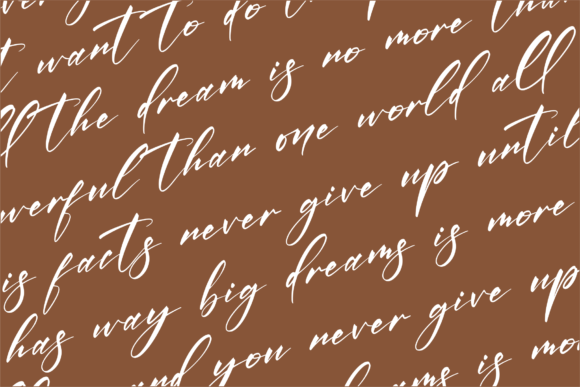 want to do
the dream is no more than
powerful than one world all
is facts never give up until
has way big dreams is more
and you never give up
dreams is more